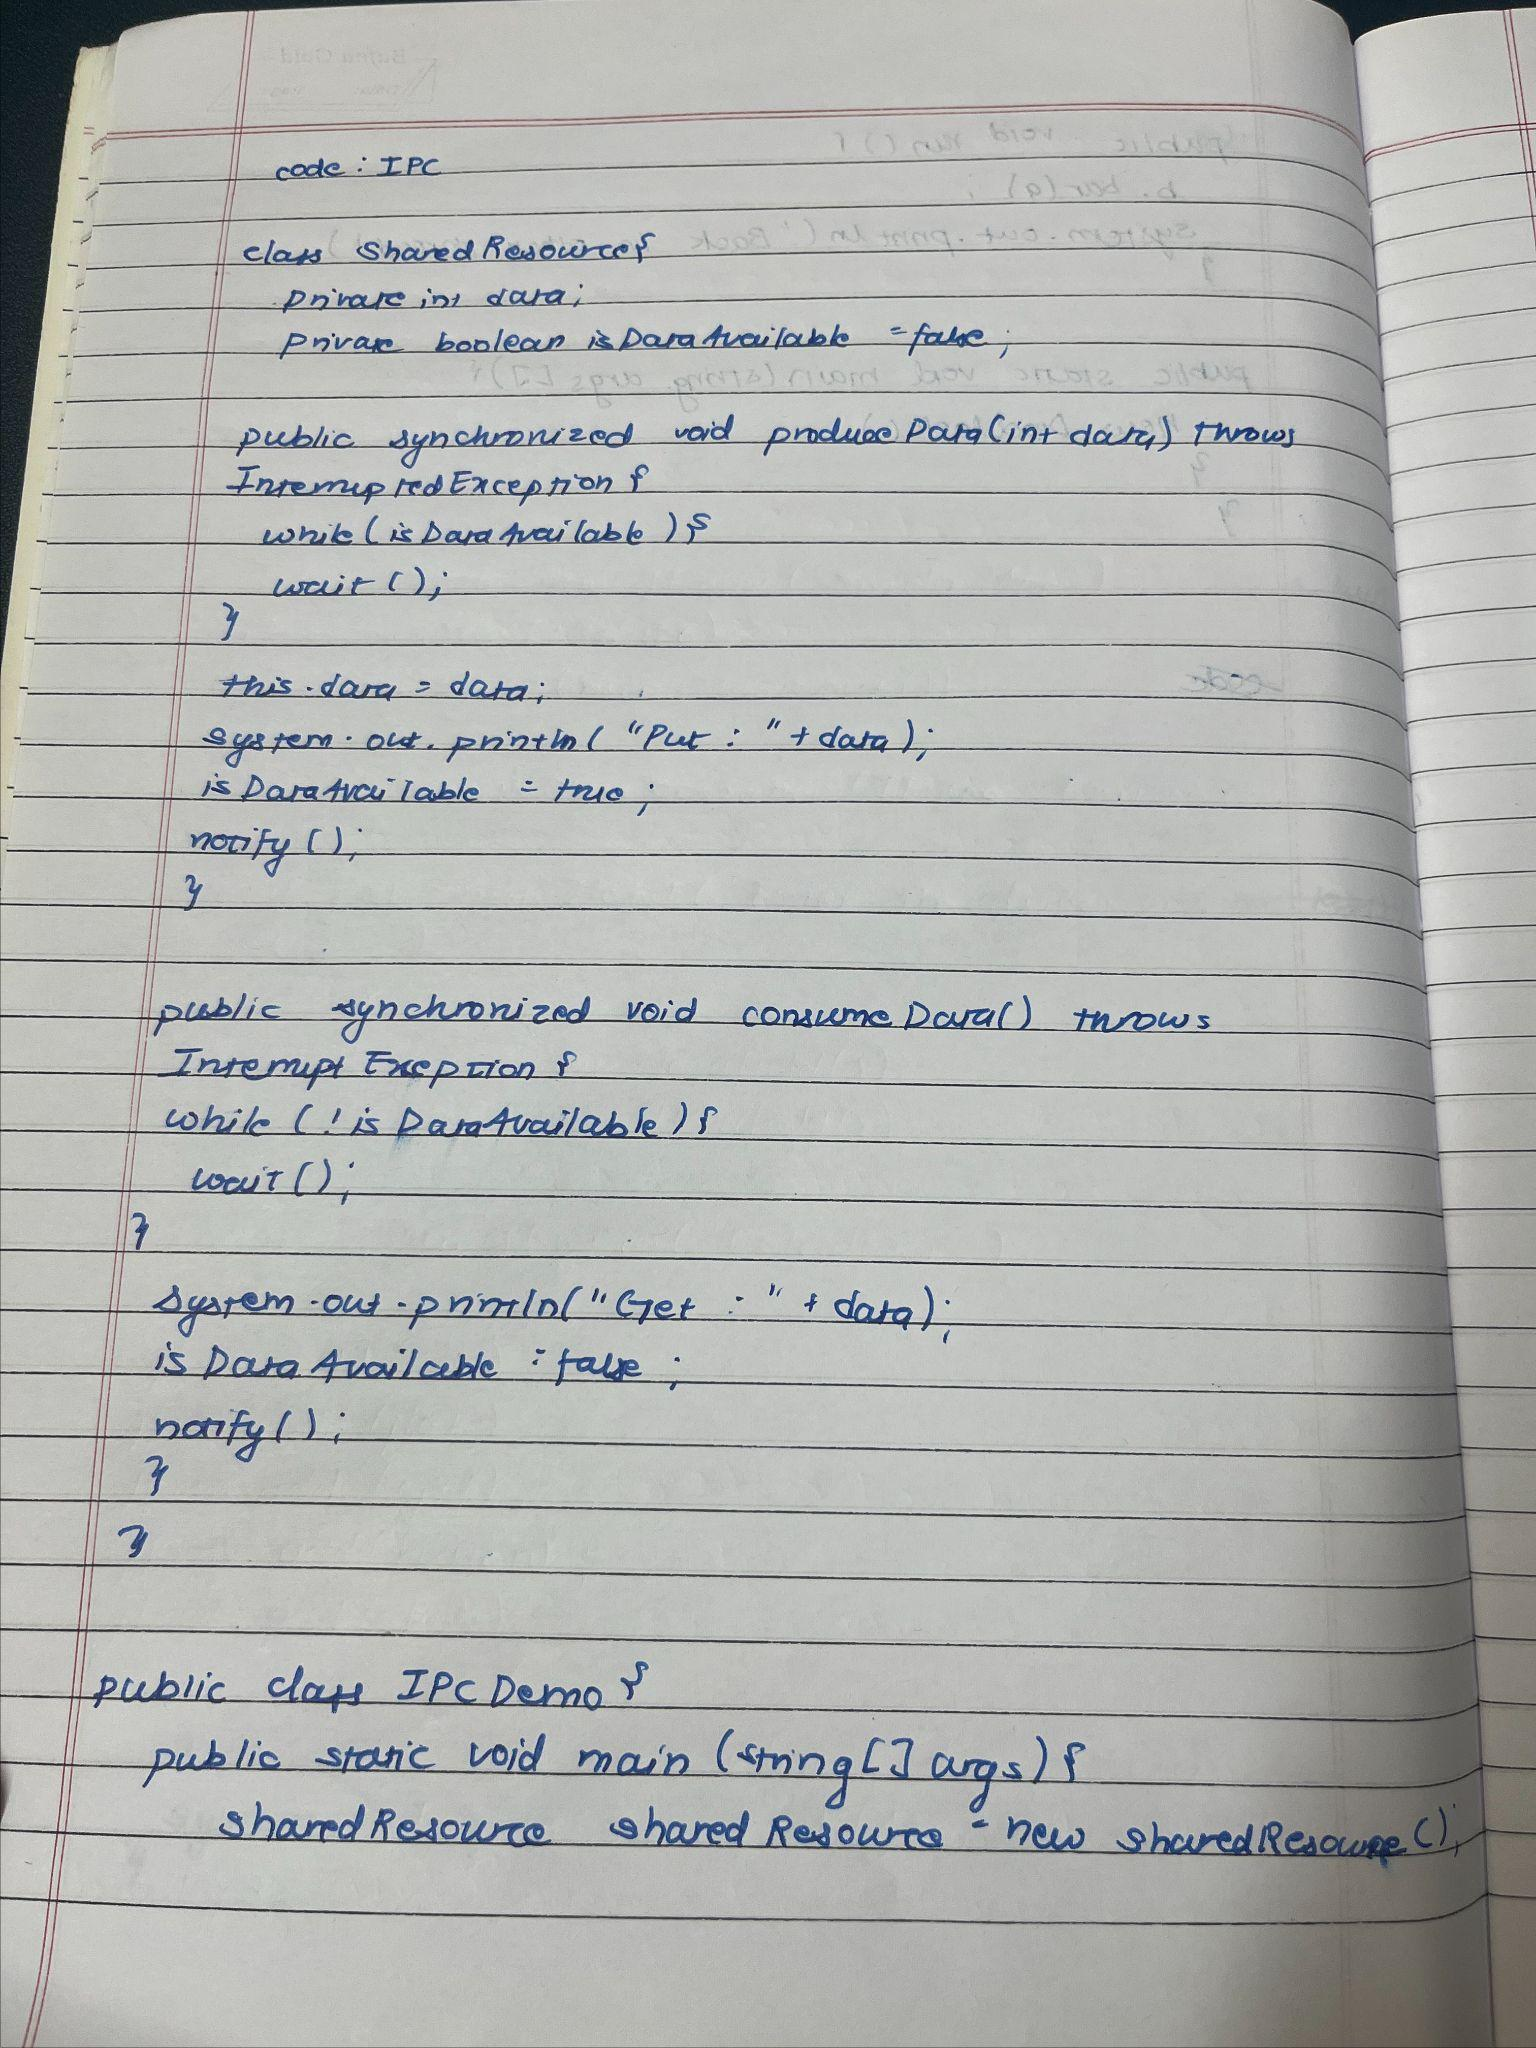 code : IPC
class SharedResource{
private int data;
private boolean isDataAvailable = false;
public synchronized void produceData(int data) throws
InterruptedException {
while (isDataAvailable ) {
wait ();
}
this.data = data;
system.out.println( "Put : " + data);
isDataAvailable = true;
notify ();
}
public synchronized void consumeData() throws
Interrupt Exception {
while (! isDataAvailable) {
wait ();
}
system.out.println("Get : " + data);
isDataAvailable = false ;
notify ();
}
}
public class IPC Demo {
public static void main (string[] args) {
sharedResource sharedResource = new sharedResource ();